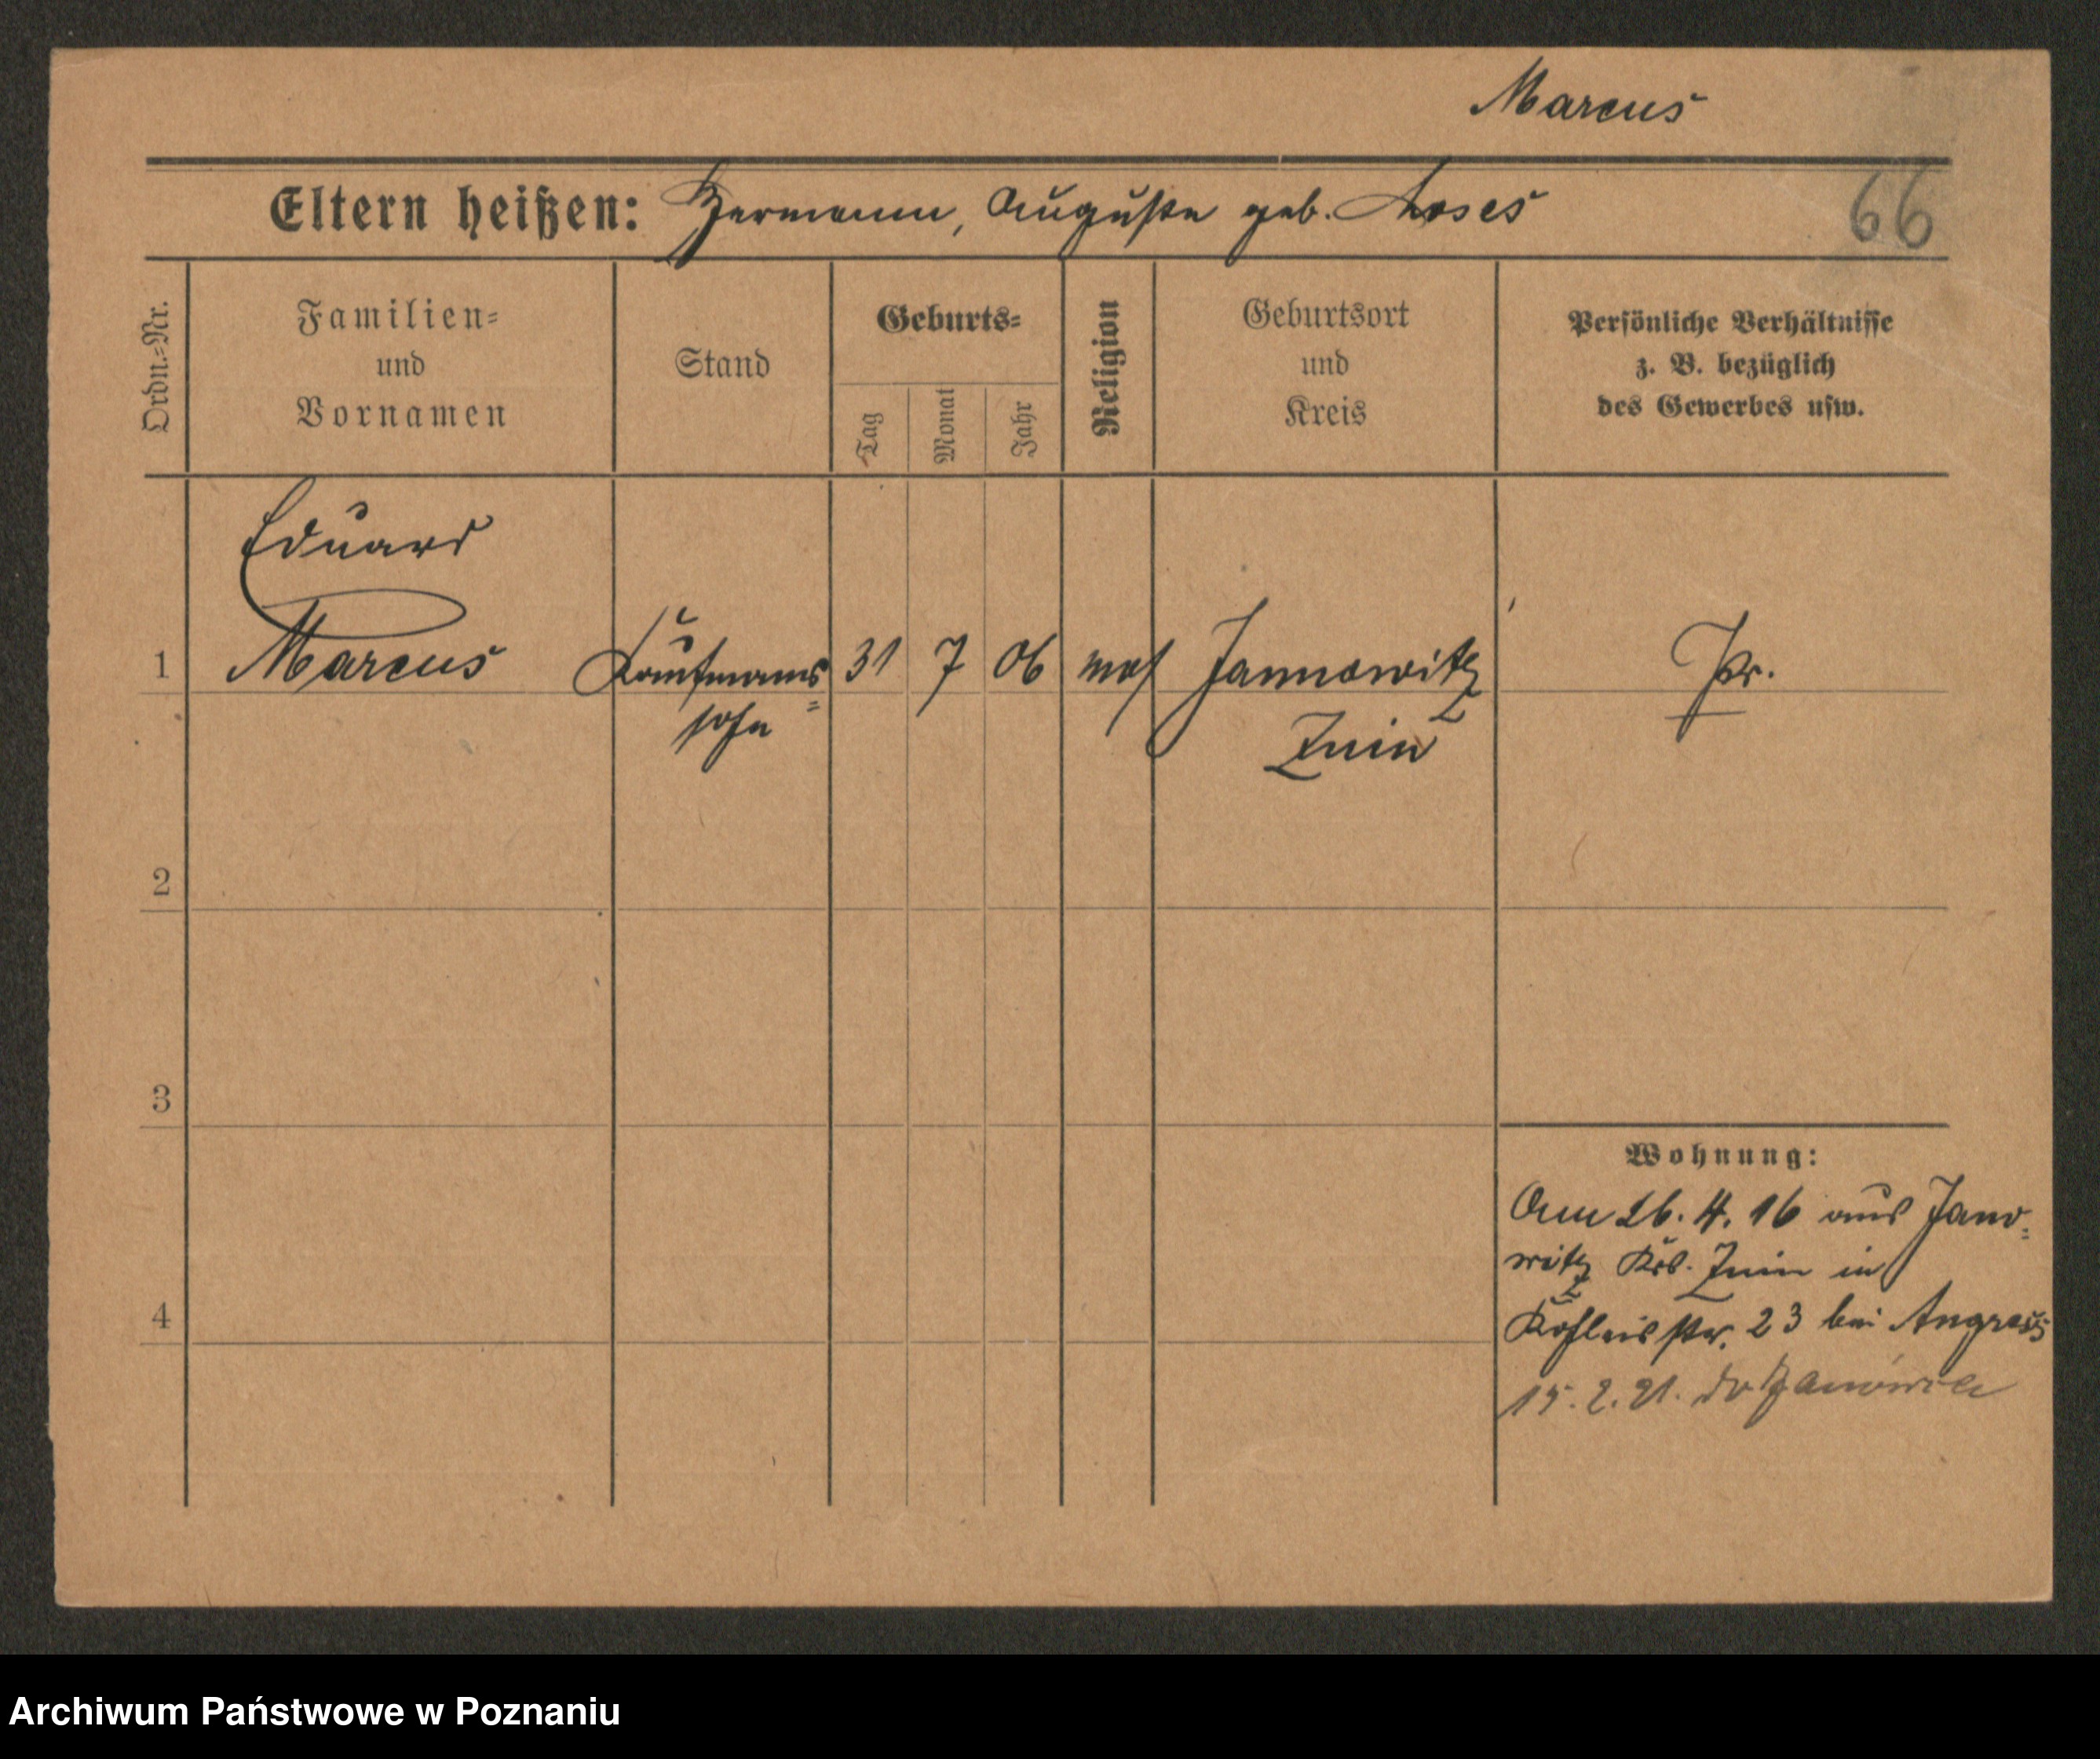 Marcus
Eltern heißen: Hermann, Auguste geb. Moses
66
Ordn.=Nr.
Familien=
und
Vornamen
Stand
Geburts=
Tag
Monat
Jahr
Religion
Geburtsort
und
Kreis
Persönliche Verhältnisse
z. B. bezüglich
des Gewerbes usw.
Eduard
1 Marcus Kaufmanns= 31 7 06 mos Jannowitz Pr.
sohn Znin
2
3
Wohnung:
Am 26. 4. 16 aus Jano=
witz Krs. Znin in
4
Köhleisstr. 23 bei Angress
15. 2. 21. do Janówca
Archiwum Państwowe w Poznaniu